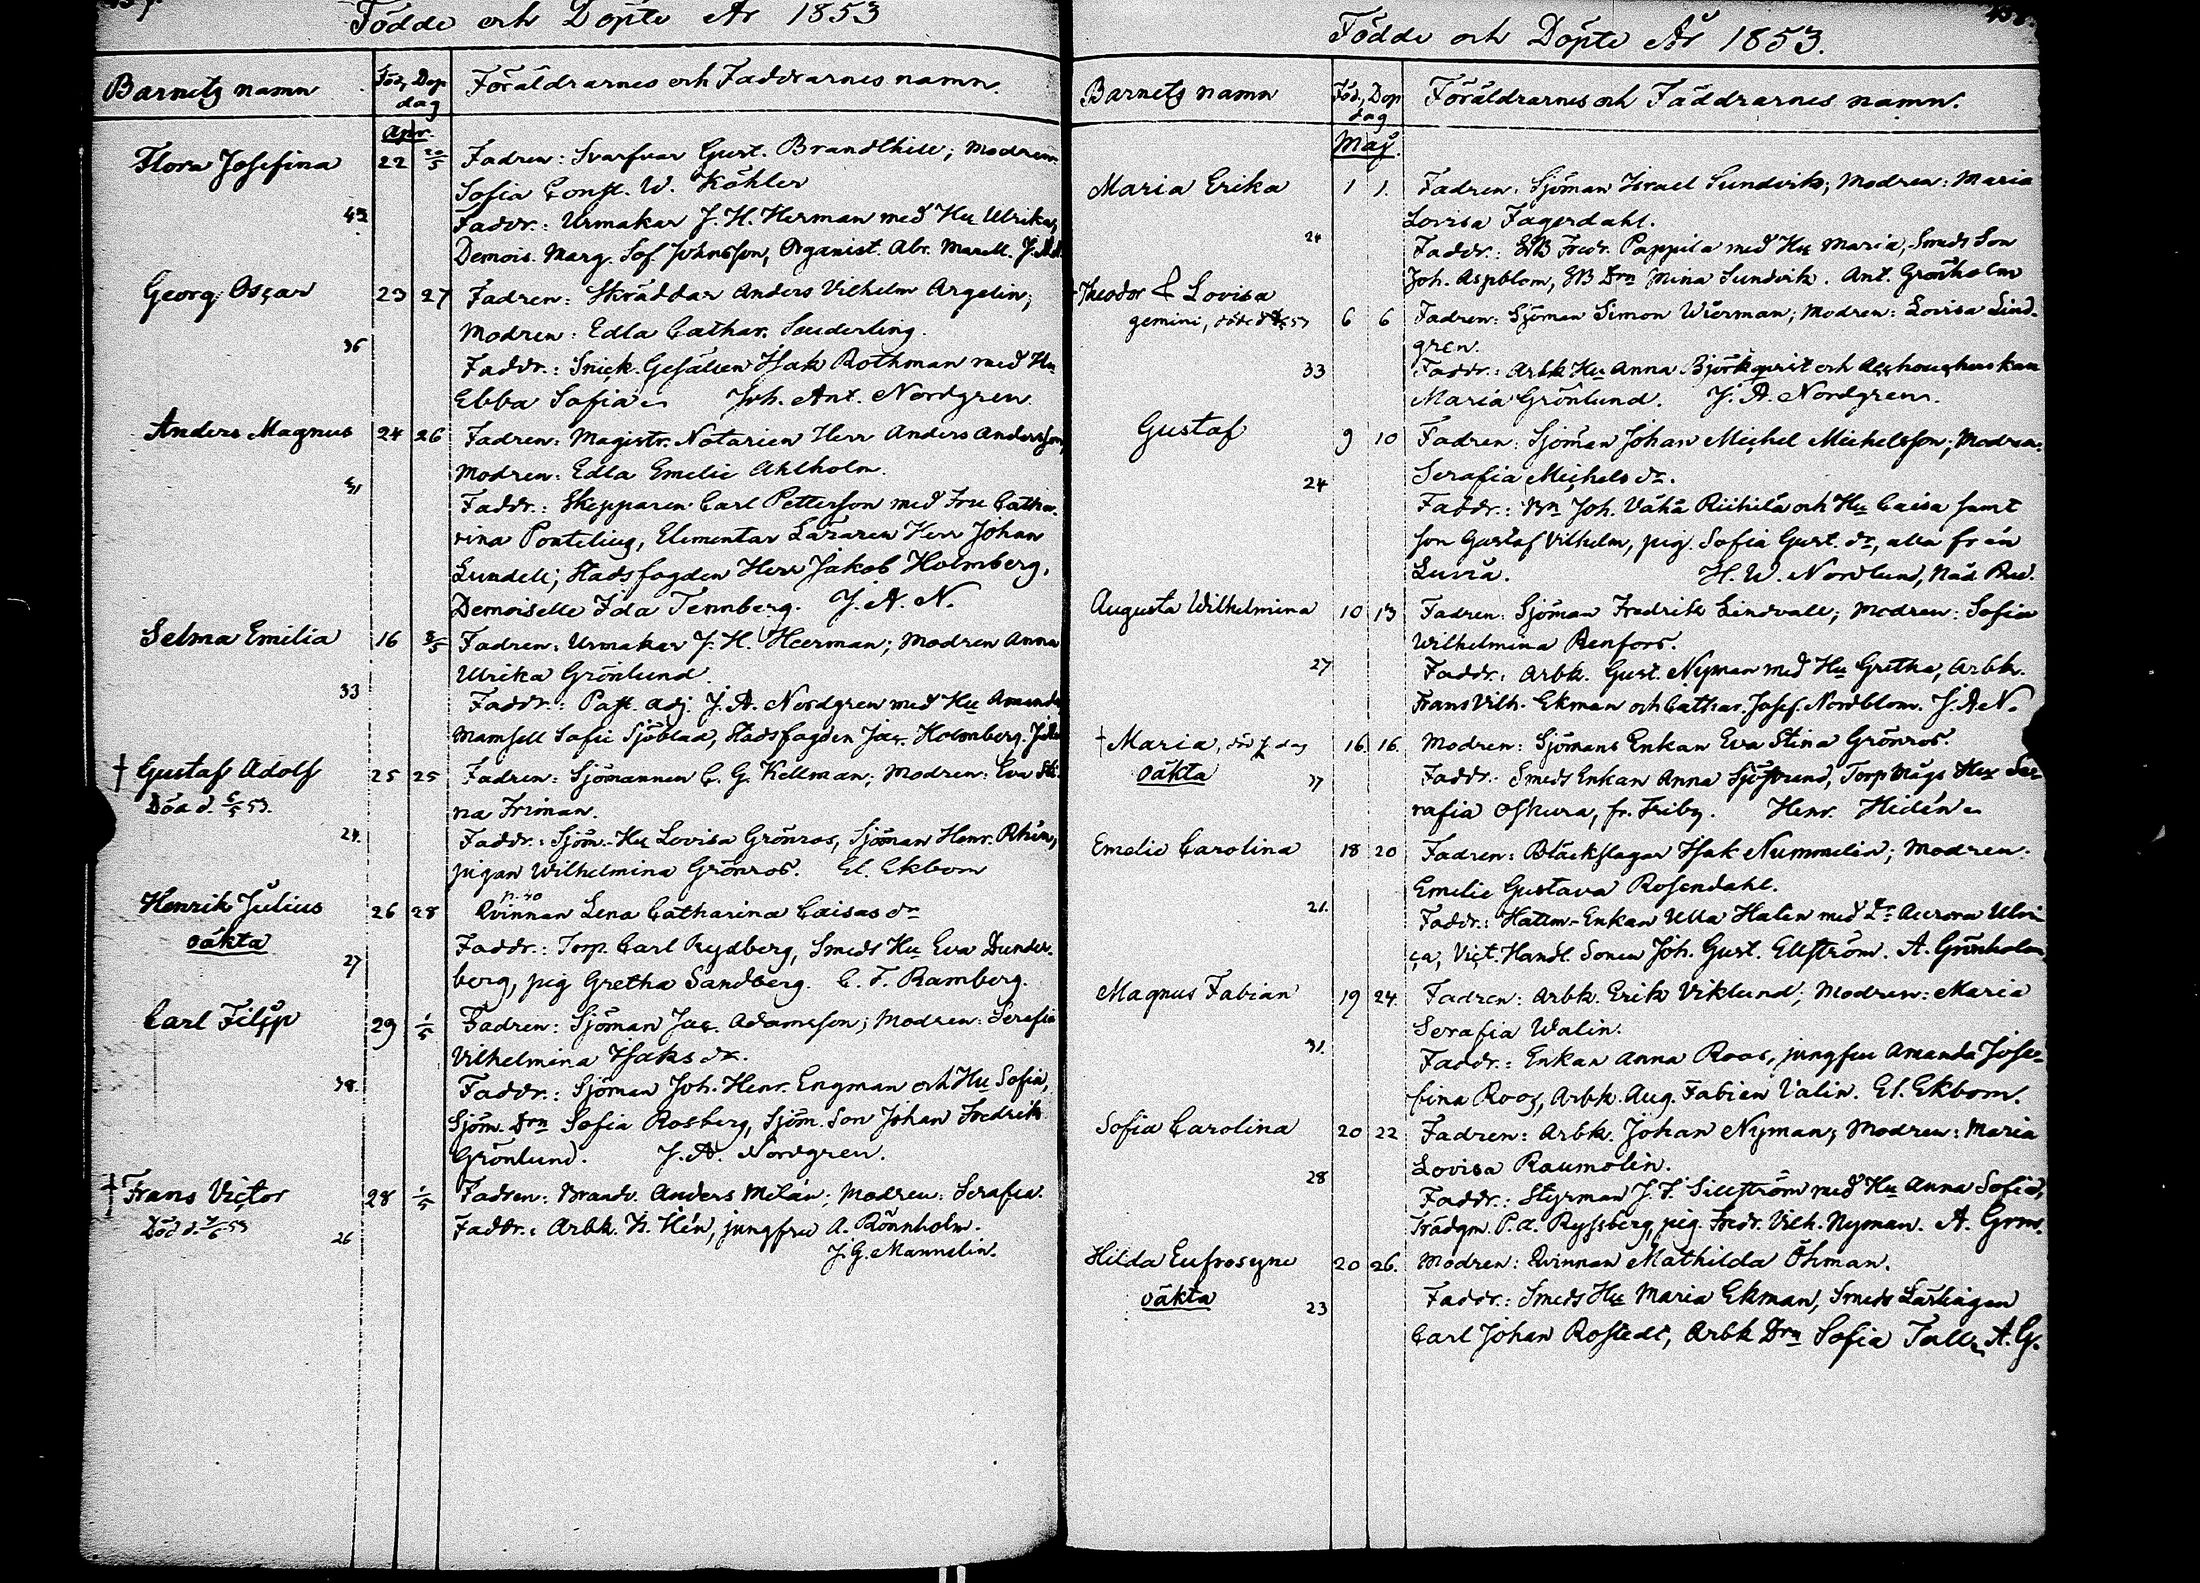 Födde och Döpte År 1853
Barnets namn
Föd, Dop
dag
Föräldrarnes och Faddrarnes namn.
Apr.
Flora Josefina 22 20/5 Fadren: Svarfvar Gust. Brandthill; Modren:
Sofia Const. W. Köhler
43. Faddr.: Urmakar J. H. Herman med Hu Ulrika,
Demois. Marg. Sof. Johnsson, Organist. Abr. Marell.
Georg Oscar 23 27 Fadren: Skräddar Anders Vilhelm Argelin;
Modren: Edla Cathar. Souderling.
36 Faddr.: Snick. Gesällen Isak Rothman med Hu
Ebba Sofia. Joh. Ant. Nordgren.
Anders Magnus 24 26 Fadren: Magistr. Notarien Herr Anders Andersson,
Modren: Edla Emelie Ahlholm.
Faddr.: Skepparen Carl Petterson med Fru Catha-
rina Pontelius, Elementar Läraren Herr Johan
Lundell; Stadsfogden Herr Jakob Holmberg,
Demoiselle Ida Tennberg. J. A. N.
Selma Emilia 16 3/5 Fadren: Urmakar J. H. Heerman; Modren Anna
Ulrika Grönlund.
33 Faddr.: Past. adj. J. A. Nordgren med Hu Amanda
Mamsell Sofie Sjöblad, Stadsfogden Jac. Holmberg.
† Gustaf Adolf 25 25 Fadren: Sjömannen C. G. Kellman; Modren: Eva Sti-
Död d. 6/5 53. na Friman.
24. Faddr.: Sjöm. Hu Lovisa Grönros, Sjöman Henr. Rhén,
pigan Wilhelmina Grönros. El. Ekbom
n. 40
Henrik Julius 26 28 Qvinnan Lena Catharina Caisas dr
oäkta Faddr.: Torp. Carl Rydberg, Smeds Hu Eva Dunder-
27 berg, pig Gretha Sandberg. C. F. Ramberg.
Carl Filip 29 1/5 Fadren: Sjöman Jac. Adamsson; Modren: Serafia
Vilhelmina Isaks dr.
38. Faddr.: Sjöman Joh. Henr. Engman och Hu Sofia,
Sjöm. Drn Sofia Rosberg, Sjöm. Son Johan Fredrik
Grönlund. J. A. Nordgren.
† Frans Victor 28 1/5 Fadren: Brandv. Anders Melán; Modren: Serafia.
26 Faddr.: Arbk. H. Hén, jungfru A. Rönnholm.
J. G. Mannelin.
Födde och Döpte År 1853.
Barnets namn
Föd, Dop
dag
Föräldrarnes och Faddrarnes namn.
Maj.
Maria Erika 1 1. Fadren: Sjöman Israel Sundvik; Modren: Maria
Lovisa Fagerdahl.
24 Faddr.: Fredr. Pappila med Hu Maria, Smeds Son
Joh. Aspblom, Drn Mina Sundvik. Ant. Grönholm
† Theodor & Lovisa
gemini, 6 6 Fadren: Sjöman Simon Wierman; Modren: Lovisa Lind-
gren.
33 Faddr.: Arbk Hu Anna Björkqvist och
Maria Grönlund. J. A. Nordgren.
Gustaf 9 10 Fadren: Sjöman Johan Michel Michelsson; Modren:
Serafia Michels dr.
24 Faddr.: Bn Joh. Vähä Riihilä och Hu Caisa samt
son Gustaf Vilhelm, pig. Sofia Gust. dr, alla från
Luvia. H. W. Nordlund, Näd. Pred.
Augusta Wilhelmina 10 13 Fadren: Sjöman Fredrik Lindvall; Modren: Sofia
Wilhelmina Renfors.
27 Faddr.: Arbk. Gust. Nyman med Hu Gretha, Arbk.
Frans Vilh. Ekman och Cathar. Josef. Nordblom. J. A. N.
† Maria, 16. 16. Modren: Sjömans Enkan Eva Stina Grönros.
oäkta 37 Faddr.: Smeds Enkan Anna Sjöstrand, Torp Mågs Hu Se-
rafia Oskura, fr. Friby. Henr. Hidén.
Emelie Carolina 18 20 Fadren: Bläckslagar Isak Nummelin; Modren:
Emelie Gustava Rosendahl.
21. Faddr.: Hattm-Enkan Ulla Halin med dr Aurora Ulri-
ca, Vict. Handl. Sonen Joh. Gust. Ellström. A. Grönholm
Magnus Fabian 19 24. Fadren: Arbk. Erik Viklund; Modren: Maria
Serafia Walin.
31. Faddr.: Enkan Anna Roos, jungfru Amanda Jose-
fina Roos, Arbk. Aug. Fabian Valin. El. Ekbom.
Sofia Carolina 20 22 Fadren: Arbk. Johan Nyman; Modren: Maria
Lovisa Raumolin.
28 Faddr.: Styrman J. F. Sillström med Hu Anna Sofia,
Trädgm. P. A. Ryssberg, pig. Fredr. Vilh. Nyman. A. Grns.
Hilda Eufrosyne 20 26. Modren: Qvinnan Mathilda Öhman.
oäkta 23 Faddr.: Smeds Hu Maria Ekman, Smeds Lärlingen
Carl Johan Rostedt, Arbk Drn Sofia Tall. A. G.